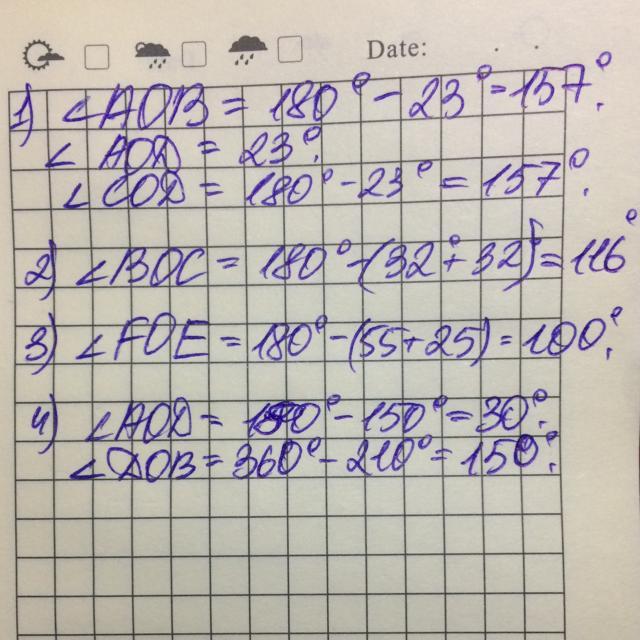 Date: . .
1) ∠AOB = 180° - 23° = 157°.
∠ AOD = 23°.
∠COD = 180° - 23° = 157°.
2) ∠BOC = 180° - (32° + 32)° = 116°
3) ∠FOE = 180° - (55 + 25) = 100°.
4) ∠AOD = 180° - 150° = 30°.
∠DOB = 360° - 210° = 150°.